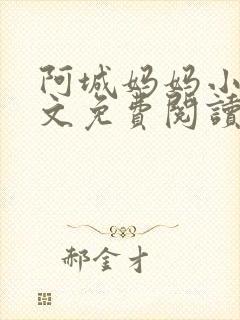 阿城妈妈小
文免費閱讀
郝金才